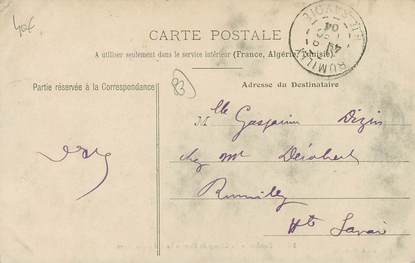 40€
CARTE POSTALE
A utiliser seulement dans le service intérieur (France, Algérie, Tunisie).
Partie réservée à la Correspondance
Adresse du Destinataire
RUMILLY
Hte SAVOIE
04
83
Mlle Gasparin
chez Mr Dérobert
Rumilly
Hte Savoie